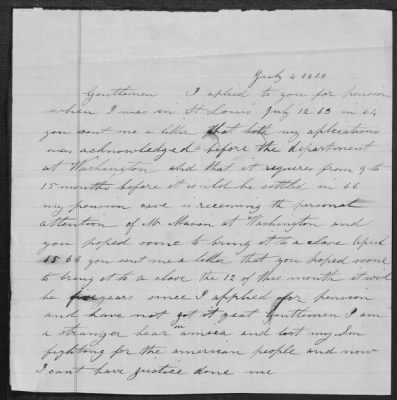 July 4 1868
Gentlemen I aplied to you for pension
when I was in St Louis July 12 63 in 64
you sent me a letter that both my aplications
was acknowledged before the department
at Washington and that it requires from 9 to
15 months before it would be settled in 66
my pension case is receiveing the personal
attention of Mr Mason at Washington and
you hoped soone to bring it to a close April
15 68 you sent me a letter that you hoped soone
to bring it to a close the 12 of this month it will
be five years since I applied for pension
and have not got it yeat Gentlemen I am
a stranger hear in america and lost my Son
fighting for the american people and now
I cant have justice done me